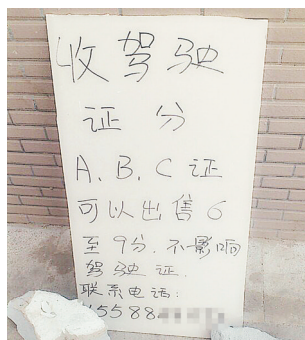 收驾驶
证分
A、B、C证
可以出售6
至9分.不影响
驾驶证.
联系电话:
15588